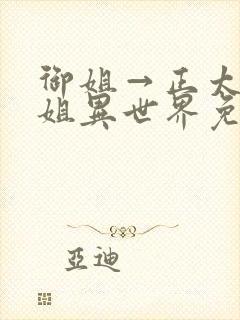 御姐→正太
姐異世界免
亞迪